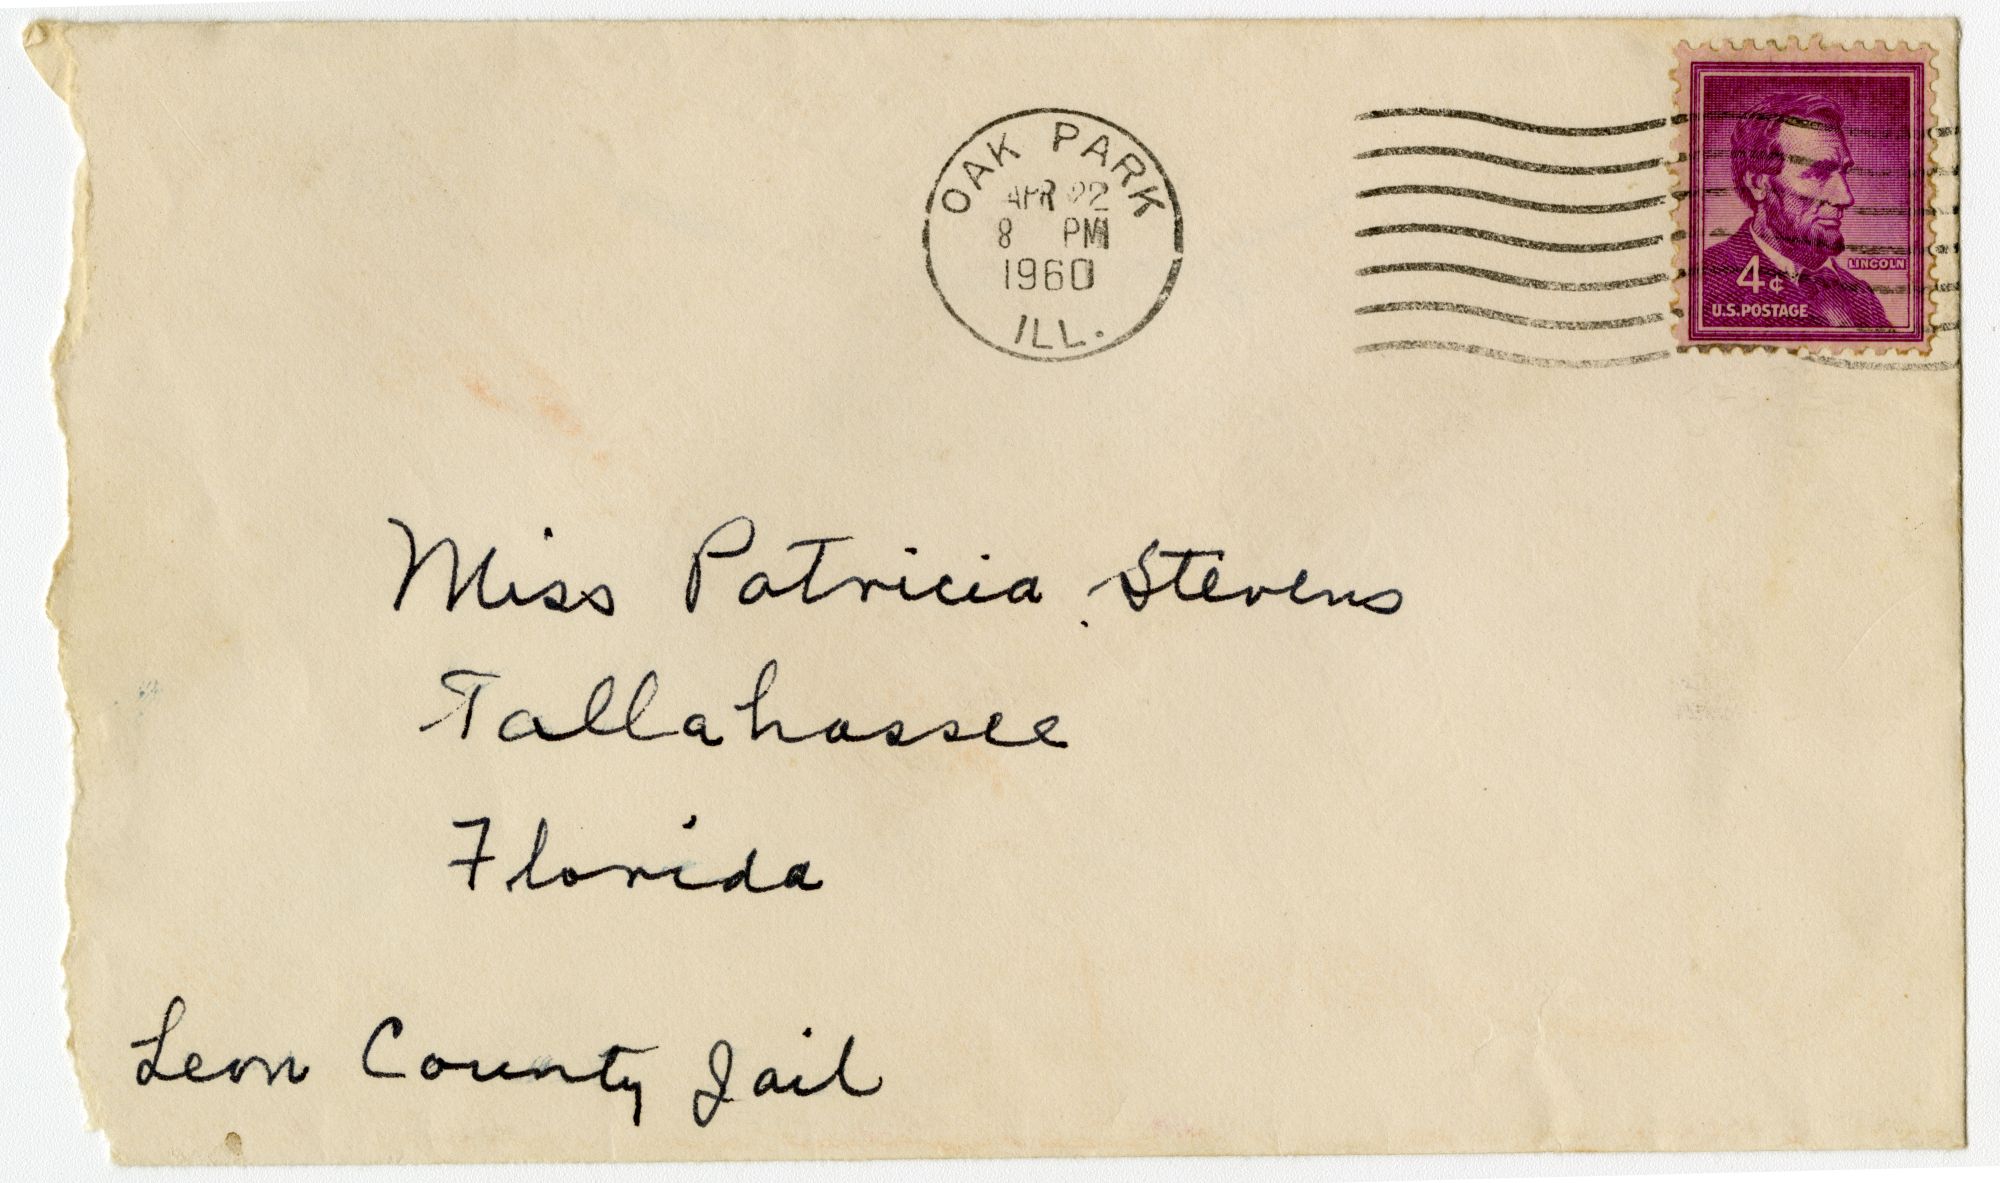 OAK PARK
APR 22
8 PM
1960
ILL.
LINCOLN
4¢
U.S.POSTAGE
Miss Patricia Stevens
Tallahassee
Florida
Leon County Jail